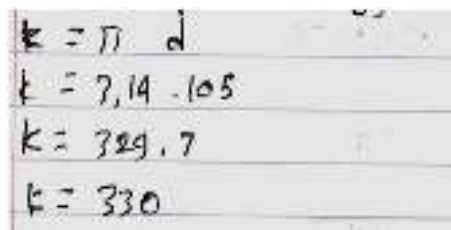 k = π d
k = 3,14 . 105
k = 329.7
k = 330